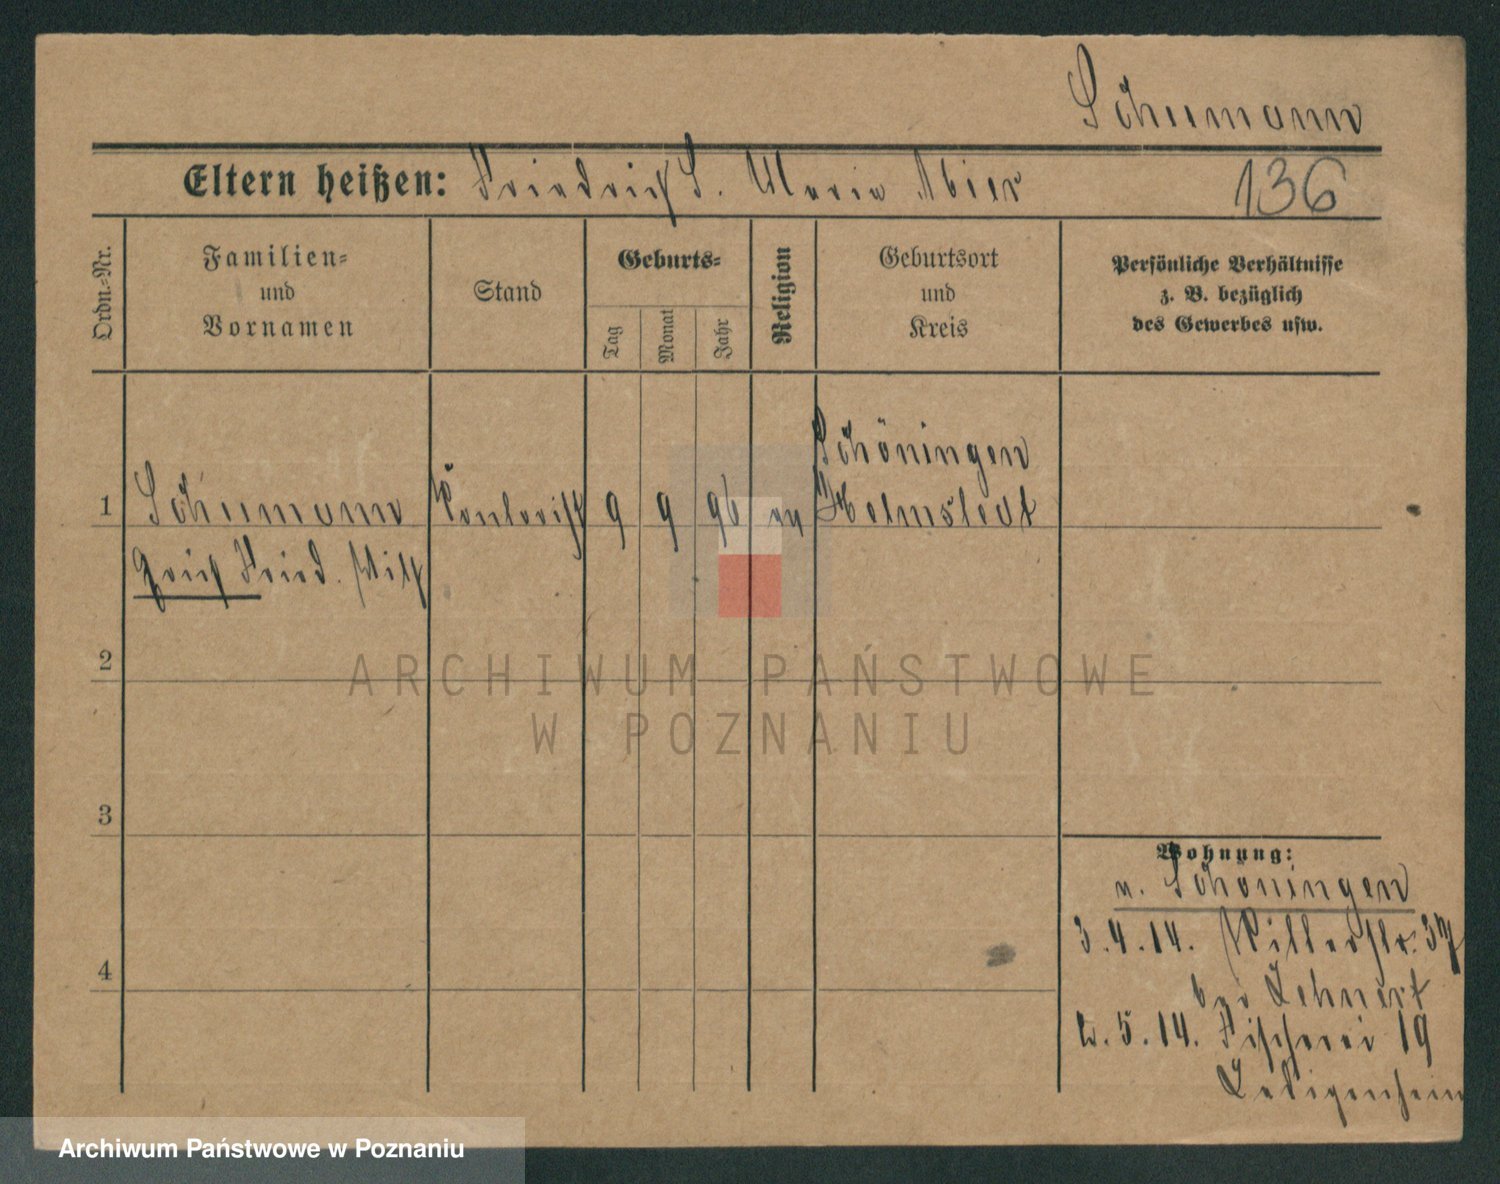 Schumann
Eltern heißen: Friedrich S. Maria
136
Ordn.-Nr.
Familien-
und
Vornamen
Stand
Geburts-
Tag
Monat
Jahr
Religion
Geburtsort
und
Kreis
Persönliche Verhältnisse
z. B. bezüglich
des Gewerbes usw.
Schöningen
1 Schumann Kontorist 9 9 96 ev Helmstedt
Erich Fried. Wilh
2
ARCHIWUM PAŃSTWOWE
W POZNANIU
3
Wohnung:
v. Schöningen
3.4.14. Ritterstr. 37
bei Lehnert
5.14. Fischerei 19
Ledigenheim
4
Archiwum Państwowe w Poznaniu